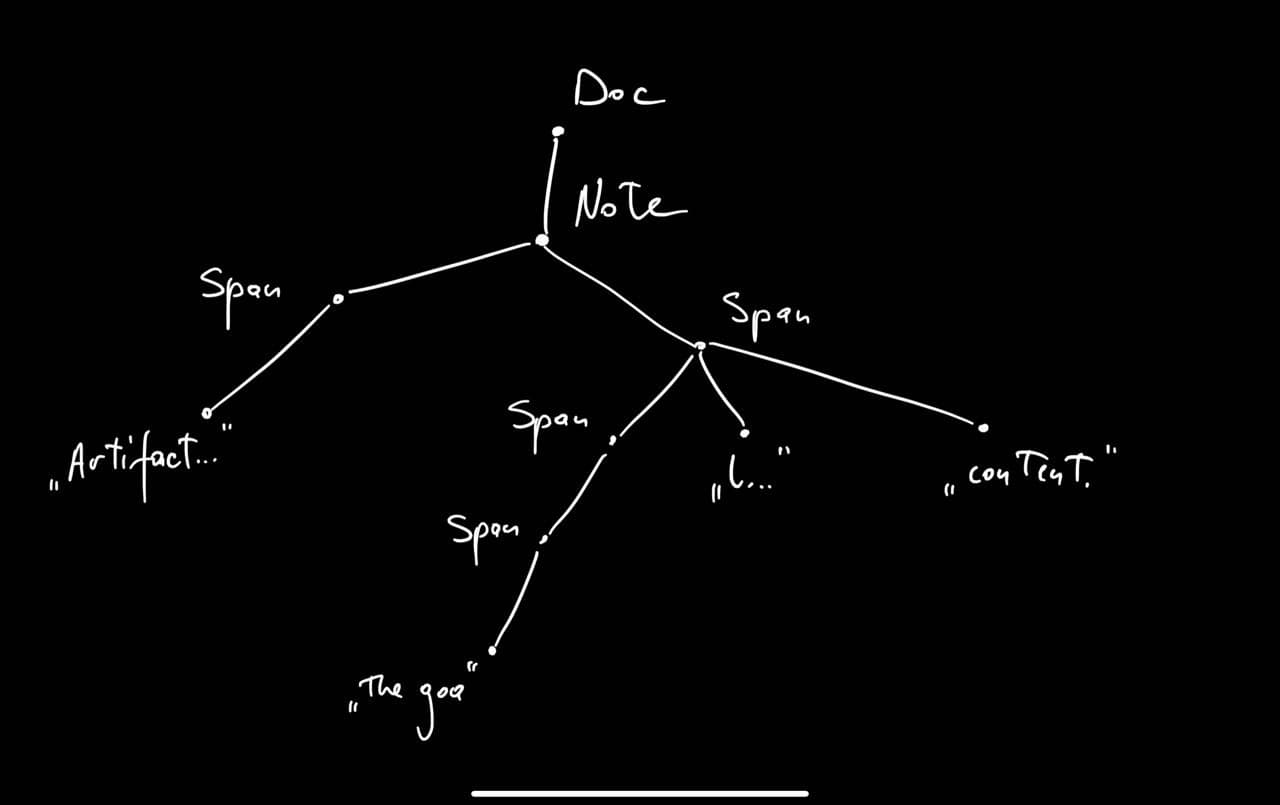 Doc
Note
Span
Span
„Artifact..."
Span
„l..."
„content."
Span
„The goa"